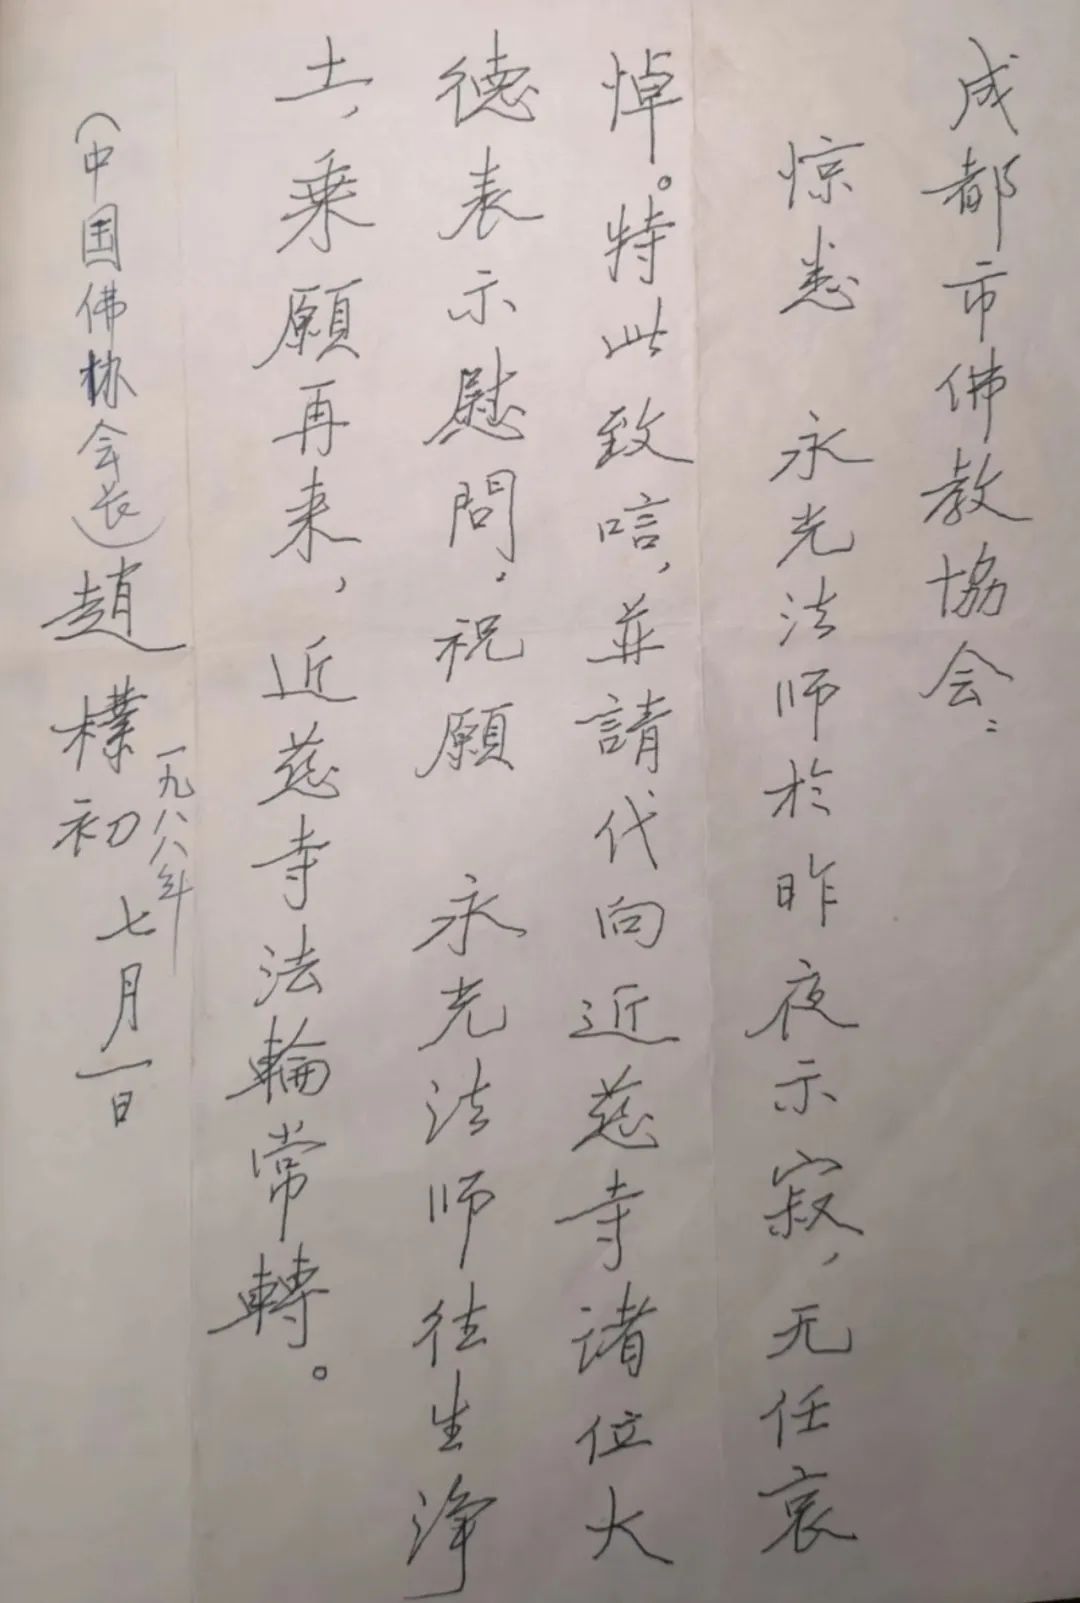 成都市佛教協会：
惊悉 永光法师於昨夜示寂，无任哀
悼。特此致唁，並請代向近慈寺诸位大
德表示慰問，祝願 永光法师往生净
土，乗願再来，近慈寺法輪常轉。
（中国佛协会长）趙樸初
一九八八年
七月一日